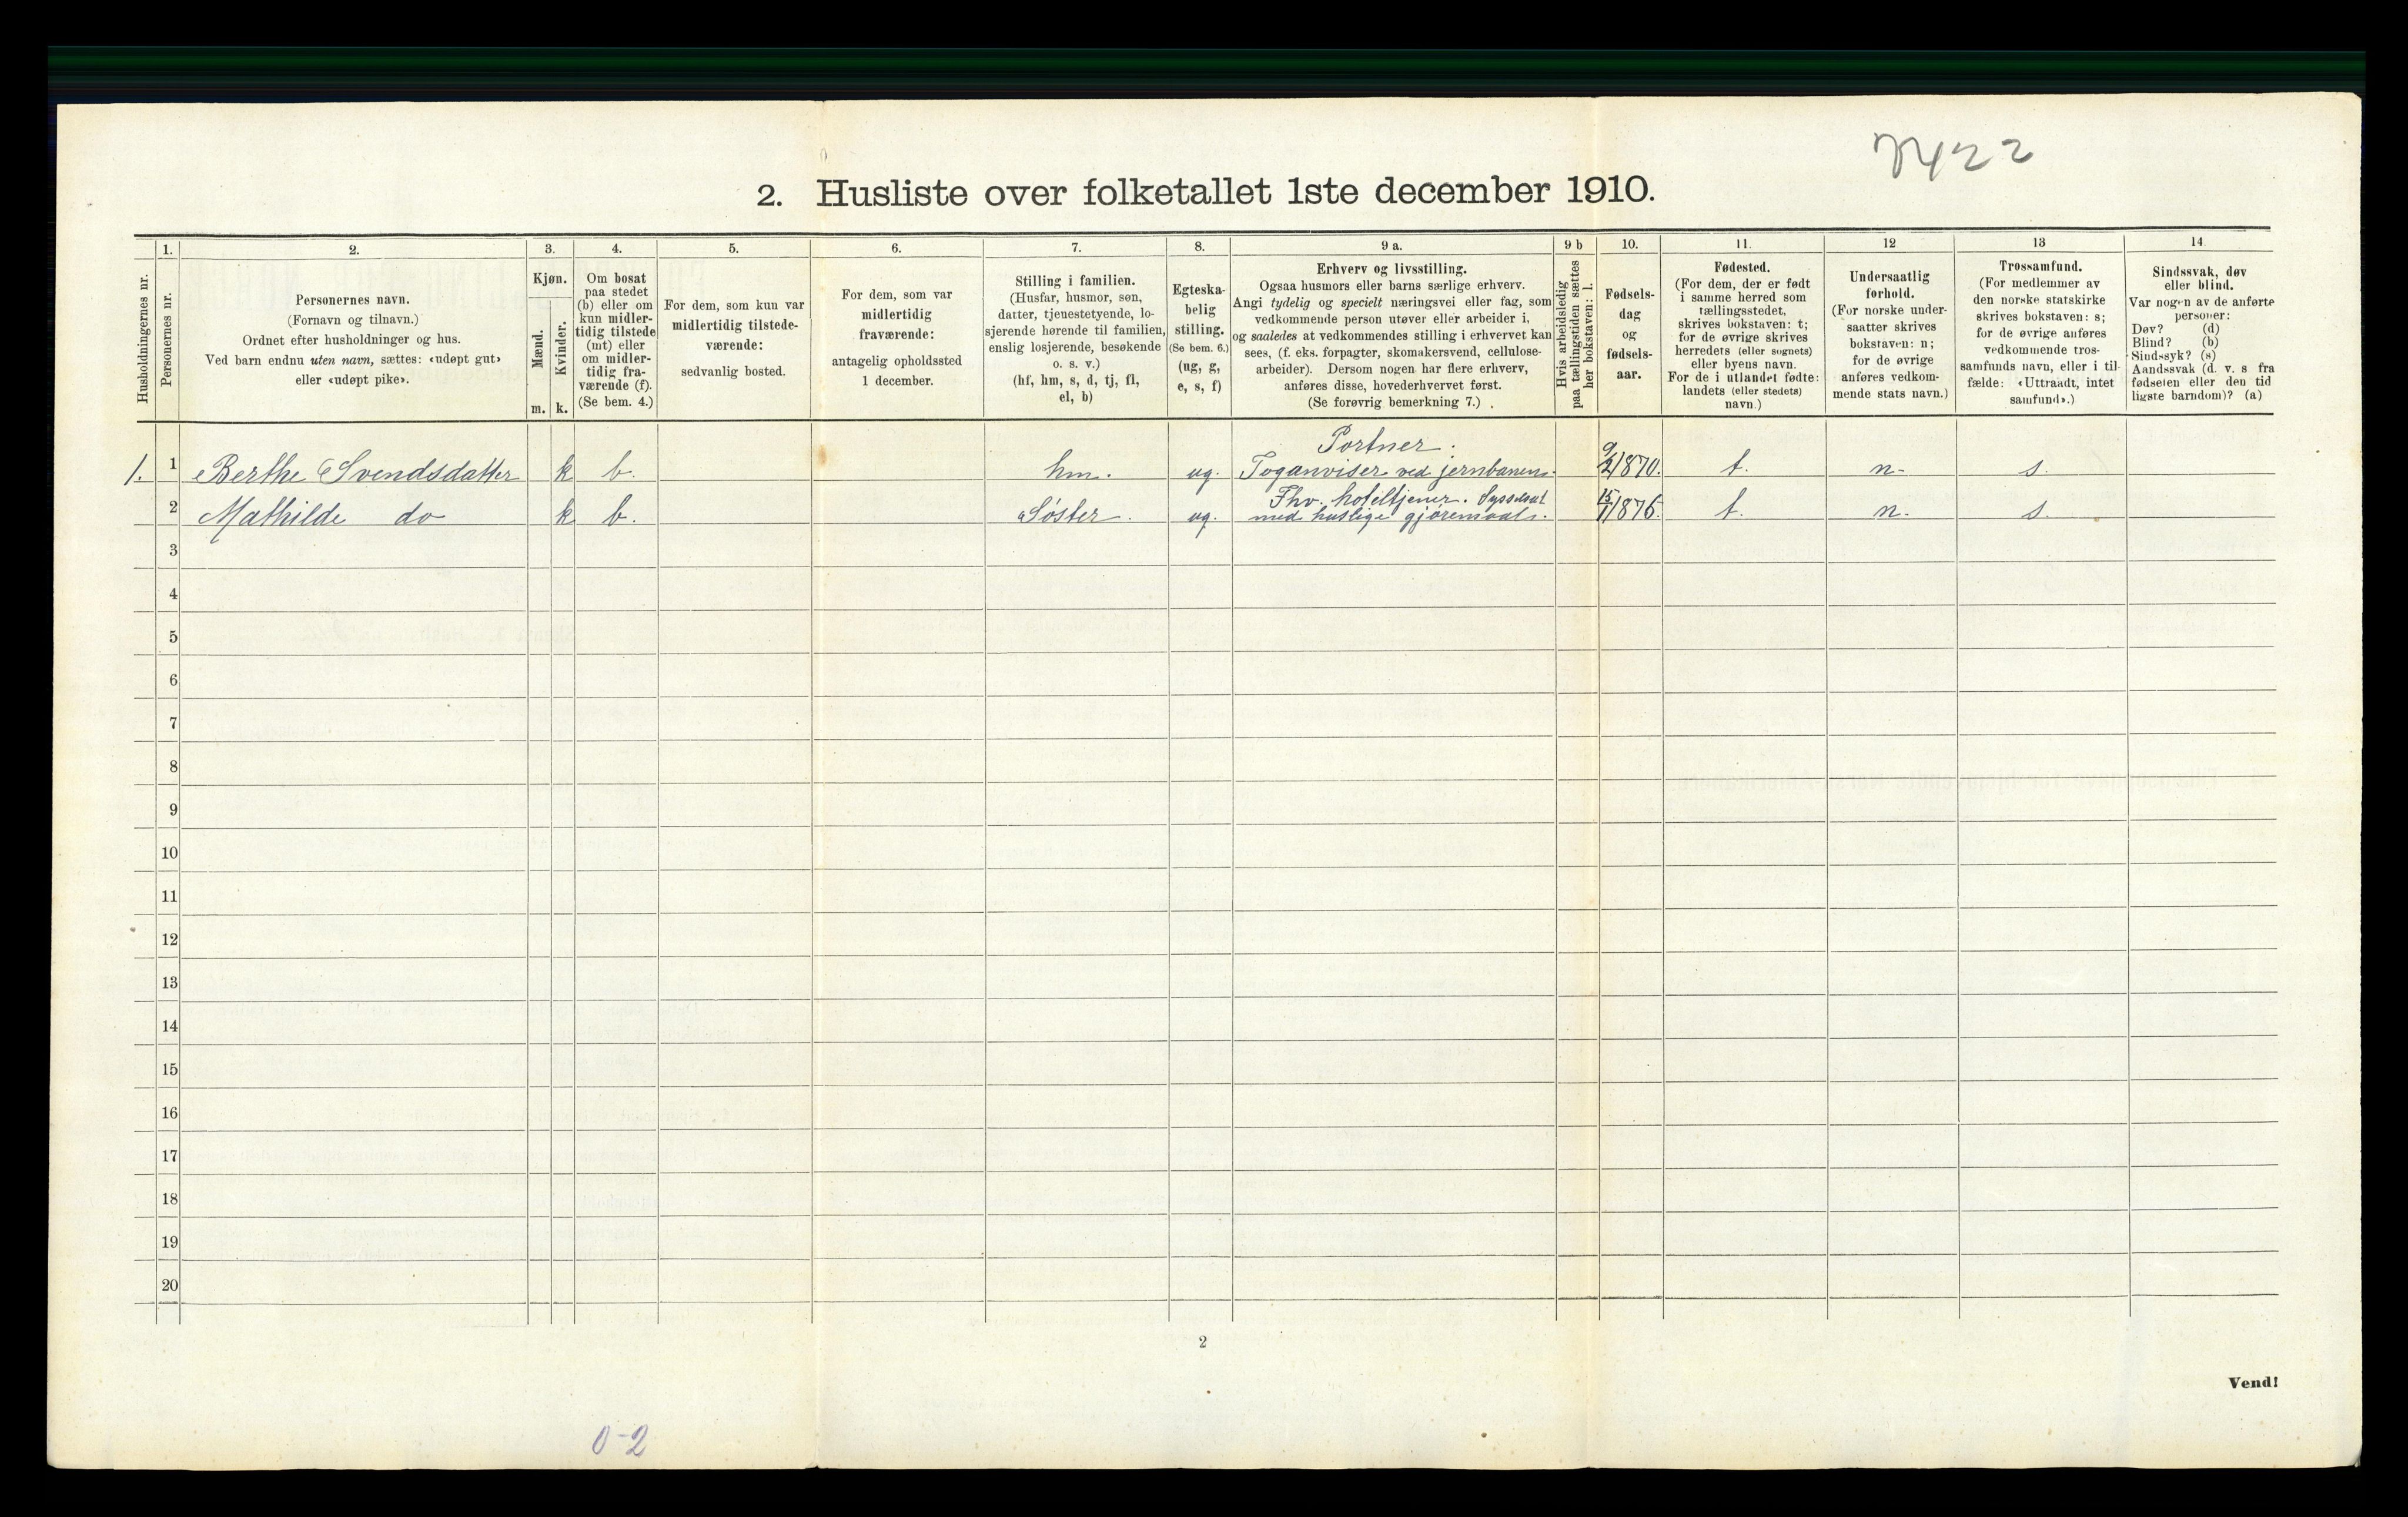 7422
2. Husliste over folketallet 1ste december 1910.
Husholdningernes nr.
1.
Personernes nr.
2.
Personernes navn.
(Fornavn og tilnavn.)
Ordnet efter husholdninger og hus.
Ved barn endnu uten navn, sættes: «udøpt gut»
eller «udøpt pike».
3.
Kjøn.
Mænd.
Kvinder.
m. k.
4.
Om bosat
paa stedet
(b) eller om
kun midler-
tidig tilstede
(mt) eller
om midler-
tidig fra-
værende (f).
(Se bem. 4.)
5.
For dem, som kun var
midlertidig tilstede-
værende:
sedvanlig bosted.
6.
For dem, som var
midlertidig
fraværende:
antagelig opholdssted
1 december.
7.
Stilling i familien.
(Husfar, husmor, søn,
datter, tjenestetyende, lo-
sjerende hørende til familien,
enslig losjerende, besøkende
o. s. v.)
(hf, hm, s, d, tj, fl,
el, b)
8.
Egteska-
belig
stilling.
(Se bem. 6.)
(ug, g,
e, s, f)
9 a.
Erhverv og livsstilling.
Ogsaa husmors eller barns særlige erhverv.
Angi tydelig og specielt næringsvei eller fag, som
vedkommende person utøver eller arbeider i,
og saaledes at vedkommendes stilling i erhvervet kan
sees, (f. eks. forpagter, skomakersvend, cellulose-
arbeider). Dersom nogen har flere erhverv,
anføres disse, hovederhvervet først.
(Se forøvrig bemerkning 7.)
9 b
Hvis arbeidsledig
paa tællingstiden sættes
her bokstaven: l.
10.
Fødsels-
dag
og
fødsels-
aar.
11.
Fødested.
(For dem, der er født
i samme herred som
tællingsstedet,
skrives bokstaven: t;
for de øvrige skrives
herredets (eller sognets)
eller byens navn.
For de i utlandet fødte:
landets (eller stedets)
navn.)
12
Undersaatlig
forhold.
(For norske under-
saatter skrives
bokstaven: n;
for de øvrige
anføres vedkom-
mende stats navn.)
13
Trossamfund.
(For medlemmer av
den norske statskirke
skrives bokstaven: s;
for de øvrige anføres
vedkommende tros-
samfunds navn, eller i til-
fælde: «Uttraadt, intet
samfund».)
14
Sindssvak, døv
eller blind.
Var nogen av de anførte
personer:
Døv? (d)
Blind? (b)
Sindssyk? (s)
Aandssvak (d. v. s fra
fødselen eller den tid
ligste barndom)? (a)
1. 1 Berthe Svendsdatter k b. hm. ug. Portner.
Toganviser ved jernbanen. 9/2 1870. t. n. s.
2 Mathilde do k b. Søster. ug. Fhv. hoteltjener. Sysselsat
med huslige gjøremaal. 15/1 1876. t. n. s.
3
4
5
6
7
8
9
10
11
12
13
14
15
16
17
18
19
20
2
Vend!
0-2